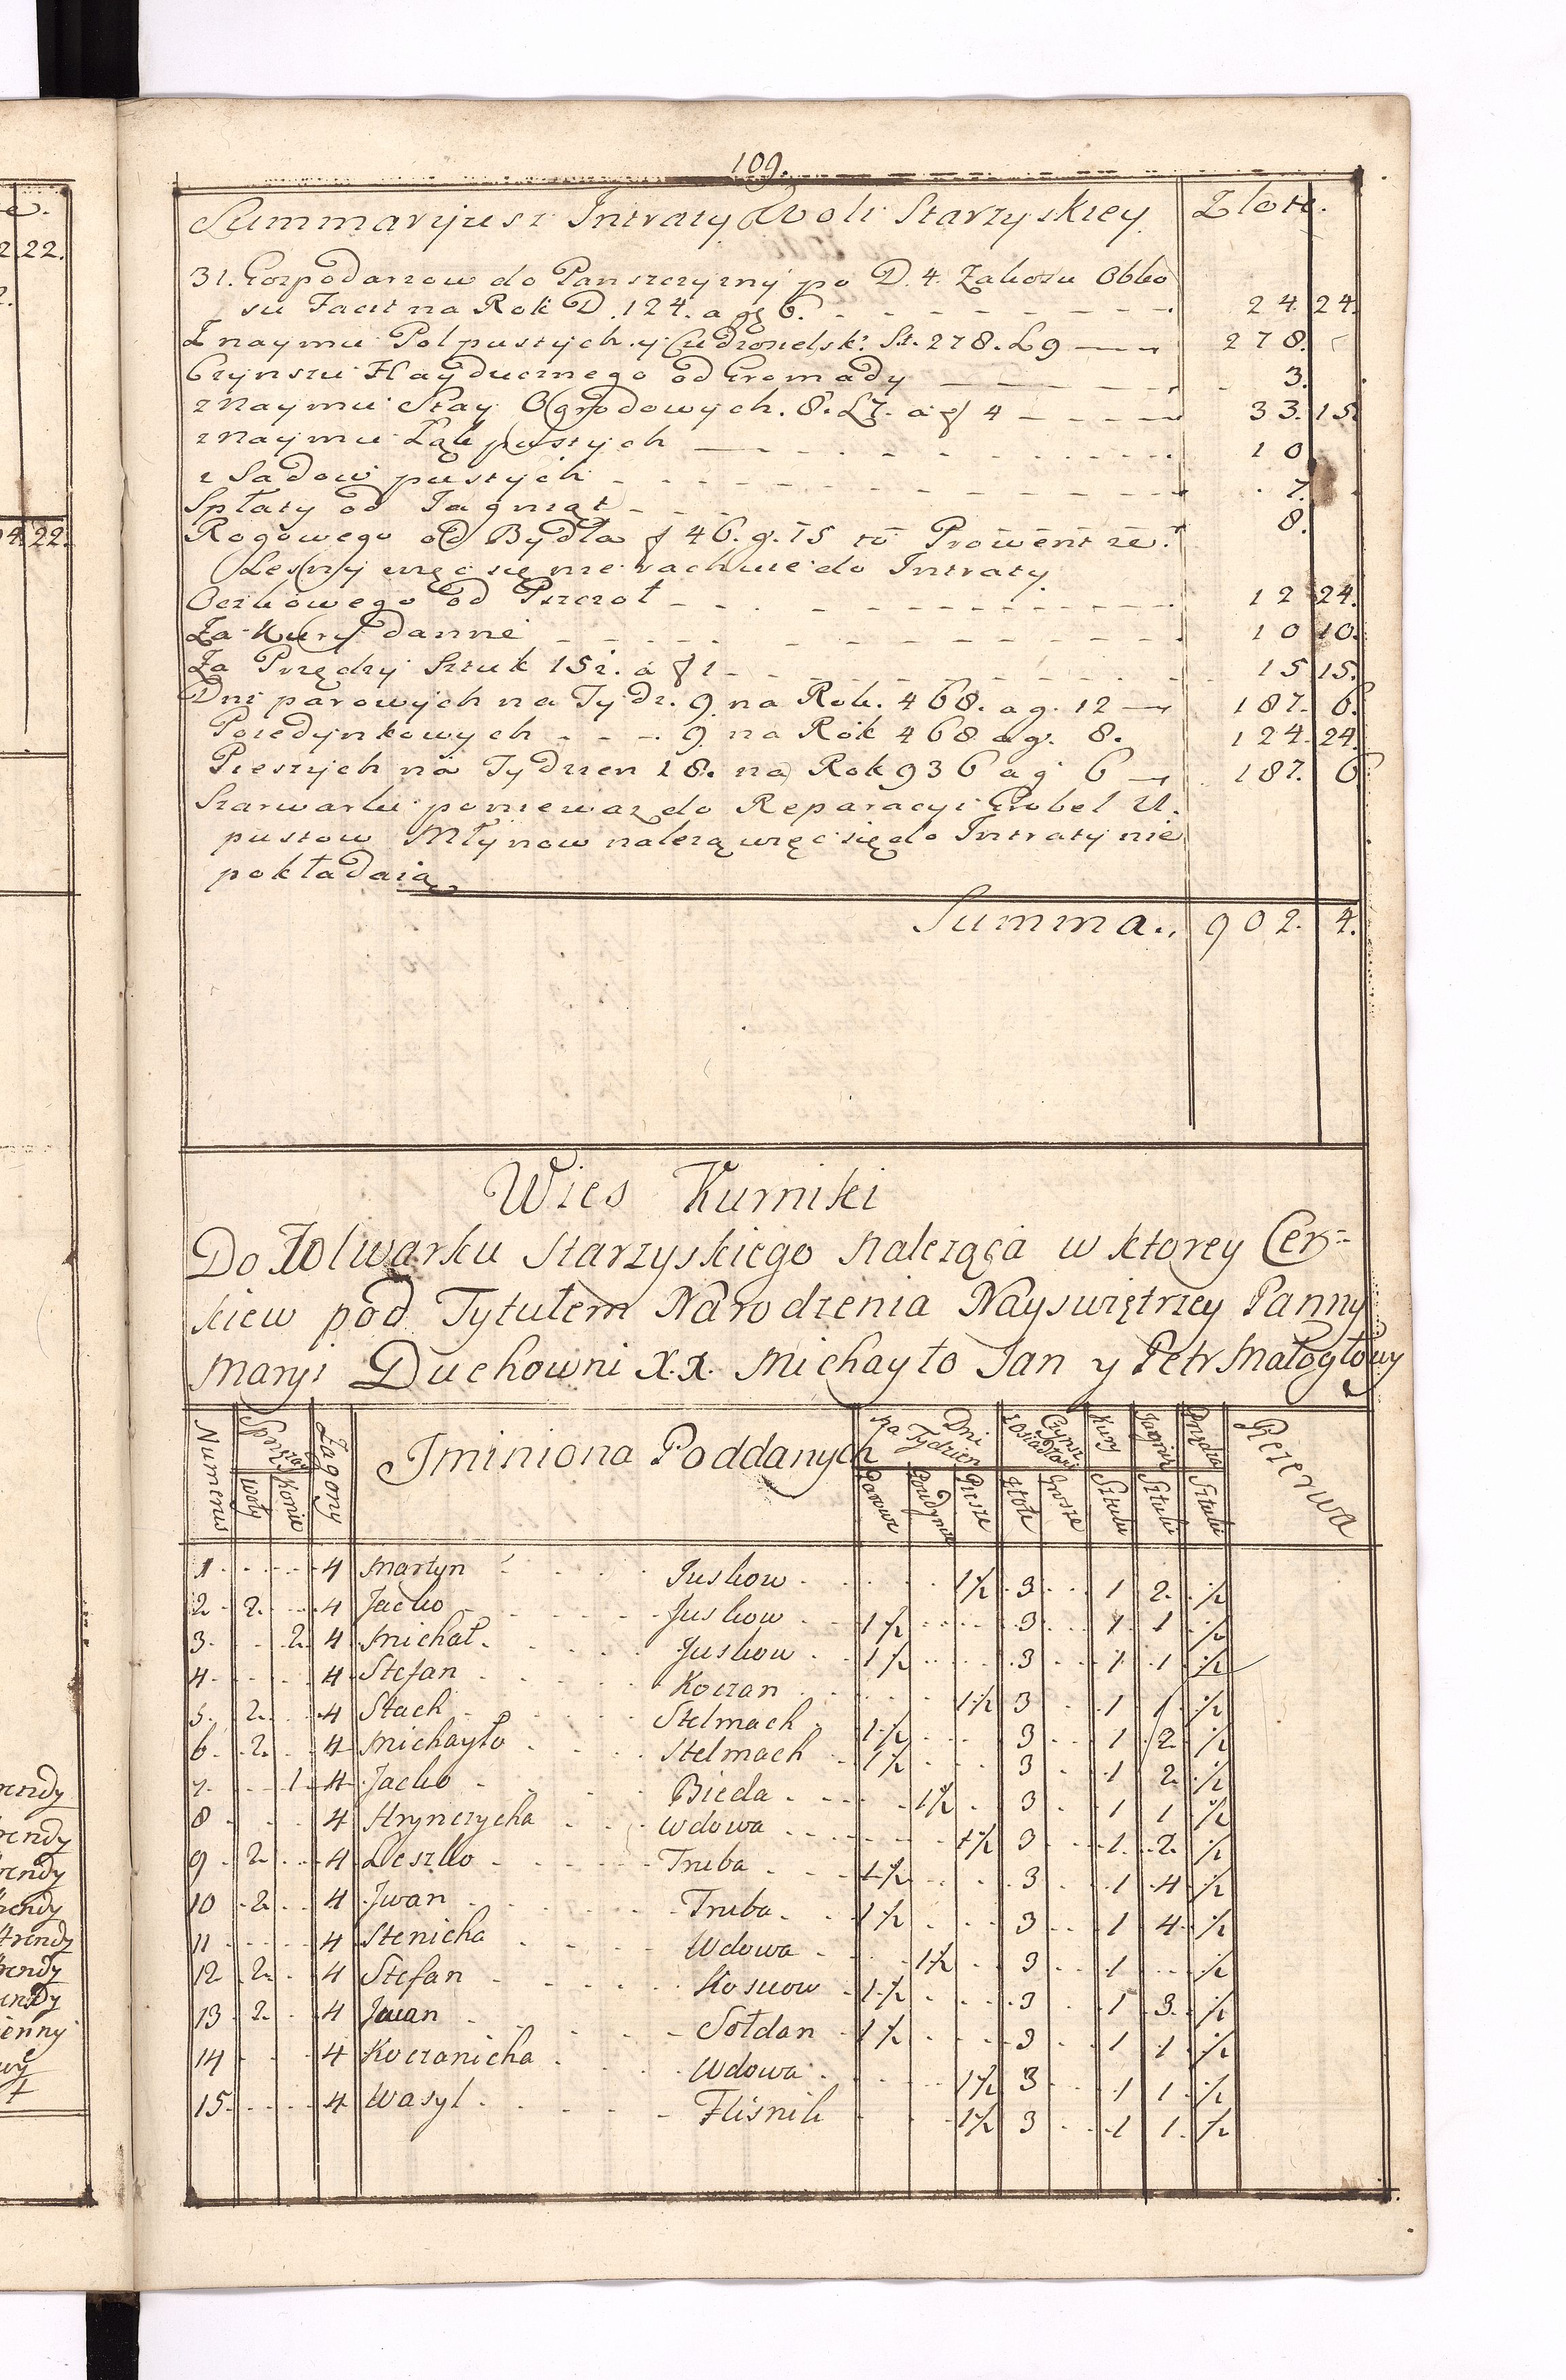 109.
Summaryusz Intraty Woli Starzyskiey. Złote.
31. Gospodarzow do Panszczyzny po D. 4. Zakosu Obko
su Facit na Rok D. 124. a g 6. 24 24.
Z naymu Pol pustych y Cudzosielsk: St. 278. L9 278.
Czynszu Hayducznego od Gromady 3.
z naymu Stay Ogrodowych. 8. L7. a f 4 33. 15.
z naymu Łąk pustych 10
z Sadow pustych 7.
Spłaty od Jagniąt 8.
Rogowego od Bydła f 46. g. 15 to Prowent ze:
Leśny więc się nie rachuie do Intraty.
Oczkowego od Pszczoł 12 24.
Za Kury danne 10 10.
Za Przędzy Sztuk 15½. a f 1 15 15.
Dni parowych na Tydz. 9. na Rok. 468. a g. 12 187. 6.
Poiedynkowych 9 na Rok 468 a g. 8. 124. 24.
Pieszych na Tydzien 18. na Rok 936 a g 6 187. 6
Szarwarku poniewaz do Reparacyi Grobel U.
pustow Młynow nalezą więc się do Intraty nie
pokładaią
Summa., 902. 4.
Wies Kurniki
Do Folwarku Starzyskiego naleząca w ktorey Cer=
kiew pod Tytułem Narodzenia Nayswiętrzey Panny
Maryi Duchowni X.X. Michayło Jan y Petr Małogłowy
Numerus Sprzężay Zagony Jminiona Poddanych Dni na Tydzien Czynsz Kury Jagnięt Przędza Rezerwa
Woły Konie Parowe Poiedynk Piesze Złote Grosze Sztuki Sztuki Sztuki
1 4 Martyn Juskow 1½ 3 1 2 ½
2 2 4 Jacko Juskow 1½ 3 1 1 ½
3 2 4 Michał Juskow 1½ 3 1 1 ½
4 4 Stefan Koczan 1½ 3 1 1 ½
5 2 4 Stach Stelmach 1½ 3 1 2 ½
6 2 4 Michayło Stelmach 1½ 3 1 2 ½
7 1 4 Jacko Bieda 1½ 3 1 1 ½
8 4 Hrynczycha Wdowa 1½ 3 1 2 ½
9 2 4 Leszko Truba 1½ 3 1 4 ½
10 2 4 Jwan Truba 1½ 3 1 4 ½
11 4 Stenicha Wdowa 1½ 3 1 ½
12 2 4 Stefan Koscow 1½ 3 1 3 ½
13 2 4 Jwan Sołdan 1½ 3 1 1 ½
14 4 Koczanicha Wdowa 1½ 3 1 1 ½
15 4 Wasyl Flisnik 1½ 3 1 1 ½